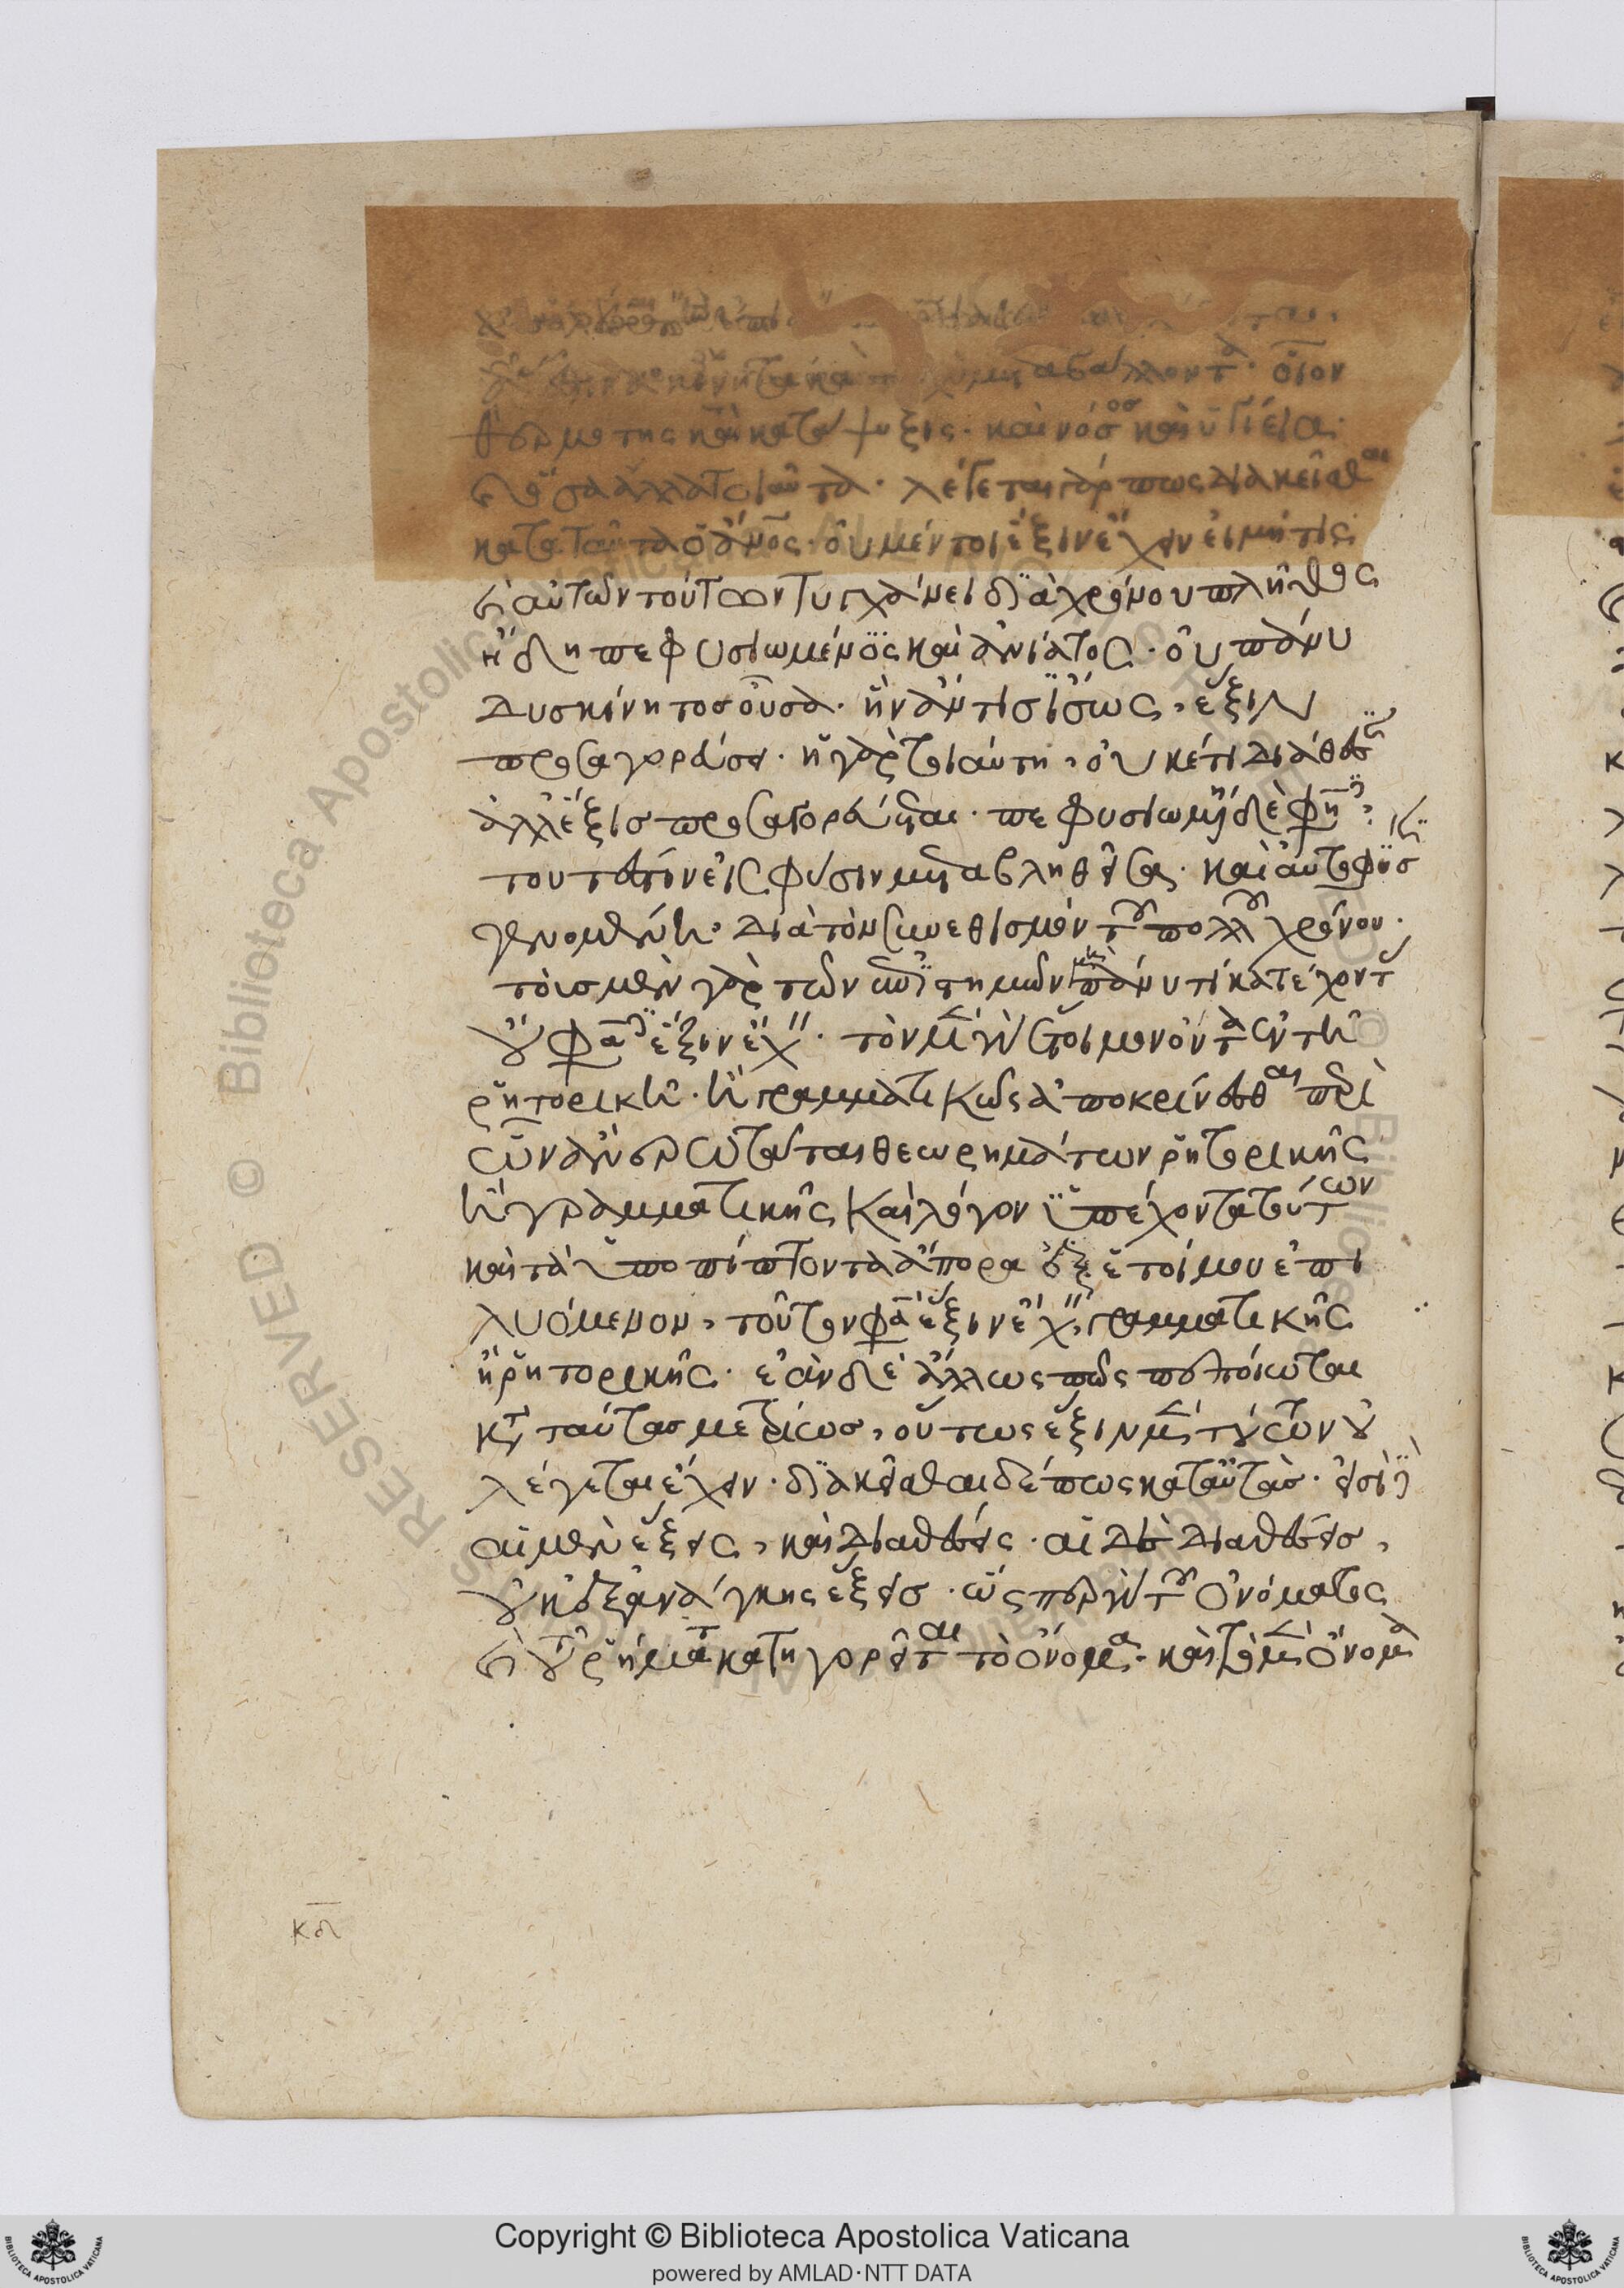 εὐκίνητα καὶ ταχὺ μεταβάλλοντα· οἷον
θερμότης καὶ κατάψυξις· καὶ νόσος καὶ ὑγίεια·
καὶ ὅσα ἄλλα τοιαῦτα· λέγεται γάρ πως διακεῖσθαι
κατὰ ταῦτα ὁ ἄνθρωπος· οὐ μέντοι ἕξιν ἔχειν εἰ μήτις
καὶ αὐτῶν τούτων τυγχάνει διὰ χρόνου πλῆθος
ἤδη πεφυσιωμένος καὶ ἀνίατος· οὐ πάνυ
δυσκίνητος οὖσα· ἣν ἄν τις ἴσως, ἕξιν
προσαγορεύσει· ἡ γὰρ τοιαύτη, οὐκέτι διάθεσις
ἀλλ' ἕξις προσαγορεύεται· πεφυσιωμένη δέ φησι,
τουτέστιν εἰς φύσιν μεταβληθεῖσα· καὶ αὐτοφυὴς
γενομένη· διὰ τὸν συνεθισμὸν τοῦ πολλοῦ χρόνου·
τοὺς μὲν γὰρ τῶν ἐπιστημῶν μὴ πάνυ τι κατέχοντας
οὔ φασιν ἕξιν ἔχειν· τὸν μέντοι γε ἕτοιμον ὄντα ἐν τῇ
ῥητορικῇ· ἢ γραμματικῶς ἀποκρίνεσθαι περὶ
ὧν ἂν ἐρωτᾶται θεωρημάτων ῥητορικῆς
ἢ γραμματικῆς καὶ λόγον ὑπέχοντα τούτων
καὶ τὰ ὑποπίπτοντα ἄπορα ἐξ ἑτοίμου ἐπι
λυόμενον, τοῦτον φασὶν ἕξιν ἔχειν, γραμματικῆς
ἢ ῥητορικῆς· ἐὰν δὲ ἄλλως πῶς πεποίωται
κατὰ ταύτας μετρίως, οὗτος ἕξιν μέν τούτων οὐ
λέγεται ἔχειν· διακεῖσθαι δέ πως κατ' αὐτάς· εἰσὶ δὲ
αἱ μὲν ἕξεις, καὶ διαθέσεις· αἱ δὲ διαθέσεις,
οὐκ ἐξ ἀνάγκης ἕξεις· ὥσπερ γε τοῦ ὀνόματος
καὶ τοῦ ῥήματος κατηγορεῖται τὸ ὄνομα· καὶ τὸ μὲν ὄνομα
κδ
Copyright © Biblioteca Apostolica Vaticana
powered by AMLAD·NTT DATA